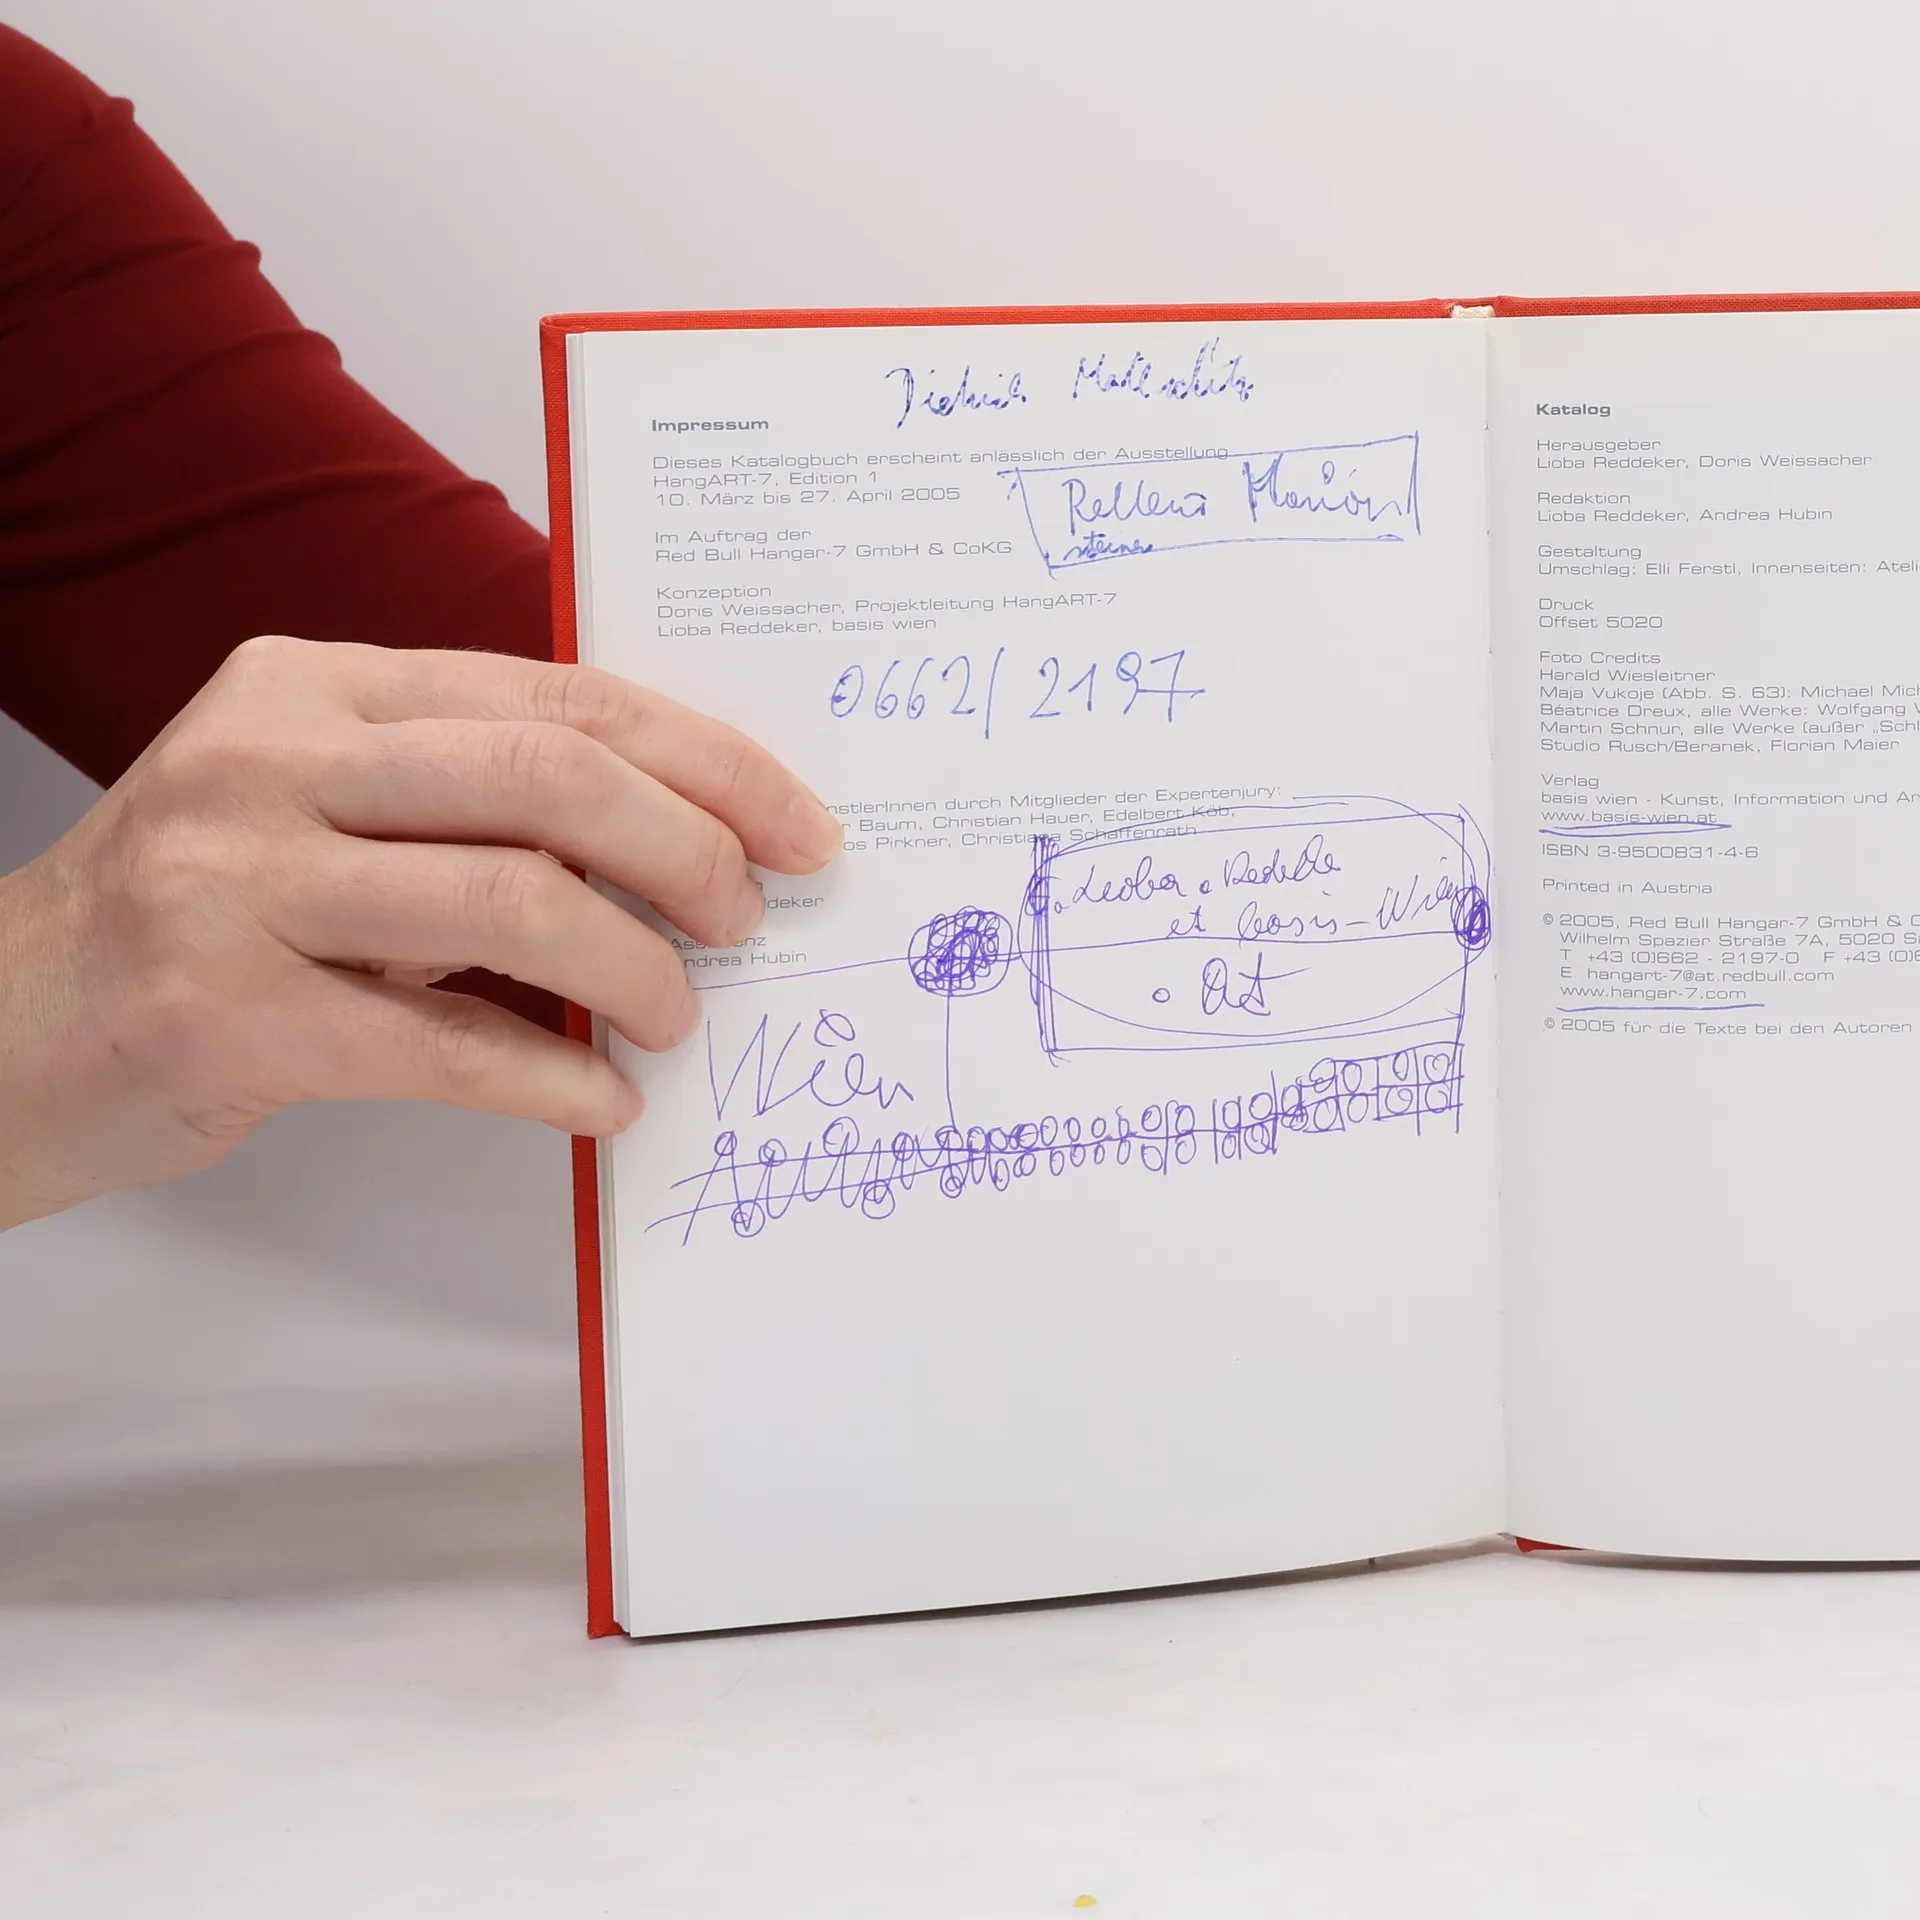 Dietrich Mateschitz
Impressum
Dieses Katalogbuch erscheint anlässlich der Ausstellung
HangART-7, Edition 1
10. März bis 27. April 2005
steiner
Im Auftrag der
Red Bull Hangar-7 GmbH & CoKG
Konzeption
Doris Weissacher, Projektleitung HangART-7
Lioba Reddeker, basis wien
0662/2197
nstlerInnen durch Mitglieder der Expertenjury:
r Baum, Christian Hauer, Edelbert Köb,
os Pirkner, Christiana Schaffenrath
et basis-Wien
deker
Ass enz
ndrea Hubin
Wien
Katalog
Herausgeber
Lioba Reddeker, Doris Weissacher
Redaktion
Lioba Reddeker, Andrea Hubin
Gestaltung
Umschlag: Elli Ferstl, Innenseiten: Ateli
Druck
Offset 5020
Foto Credits
Harald Wiesleitner
Maja Vukoje (Abb. S. 63): Michael Mich
Béatrice Dreux, alle Werke: Wolfgang
Martin Schnur, alle Werke (außer „Schl
Studio Rusch/Beranek, Florian Maier
Verlag
basis wien - Kunst, Information und Ar
www.basis-wien.at
ISBN 3-9500831-4-6
Printed in Austria
© 2005, Red Bull Hangar-7 GmbH & C
Wilhelm Spazier Straße 7A, 5020 S
T +43 (0)662 - 2197-0 F +43 (0)6
E hangart-7@at.redbull.com
www.hangar-7.com
© 2005 für die Texte bei den Autoren